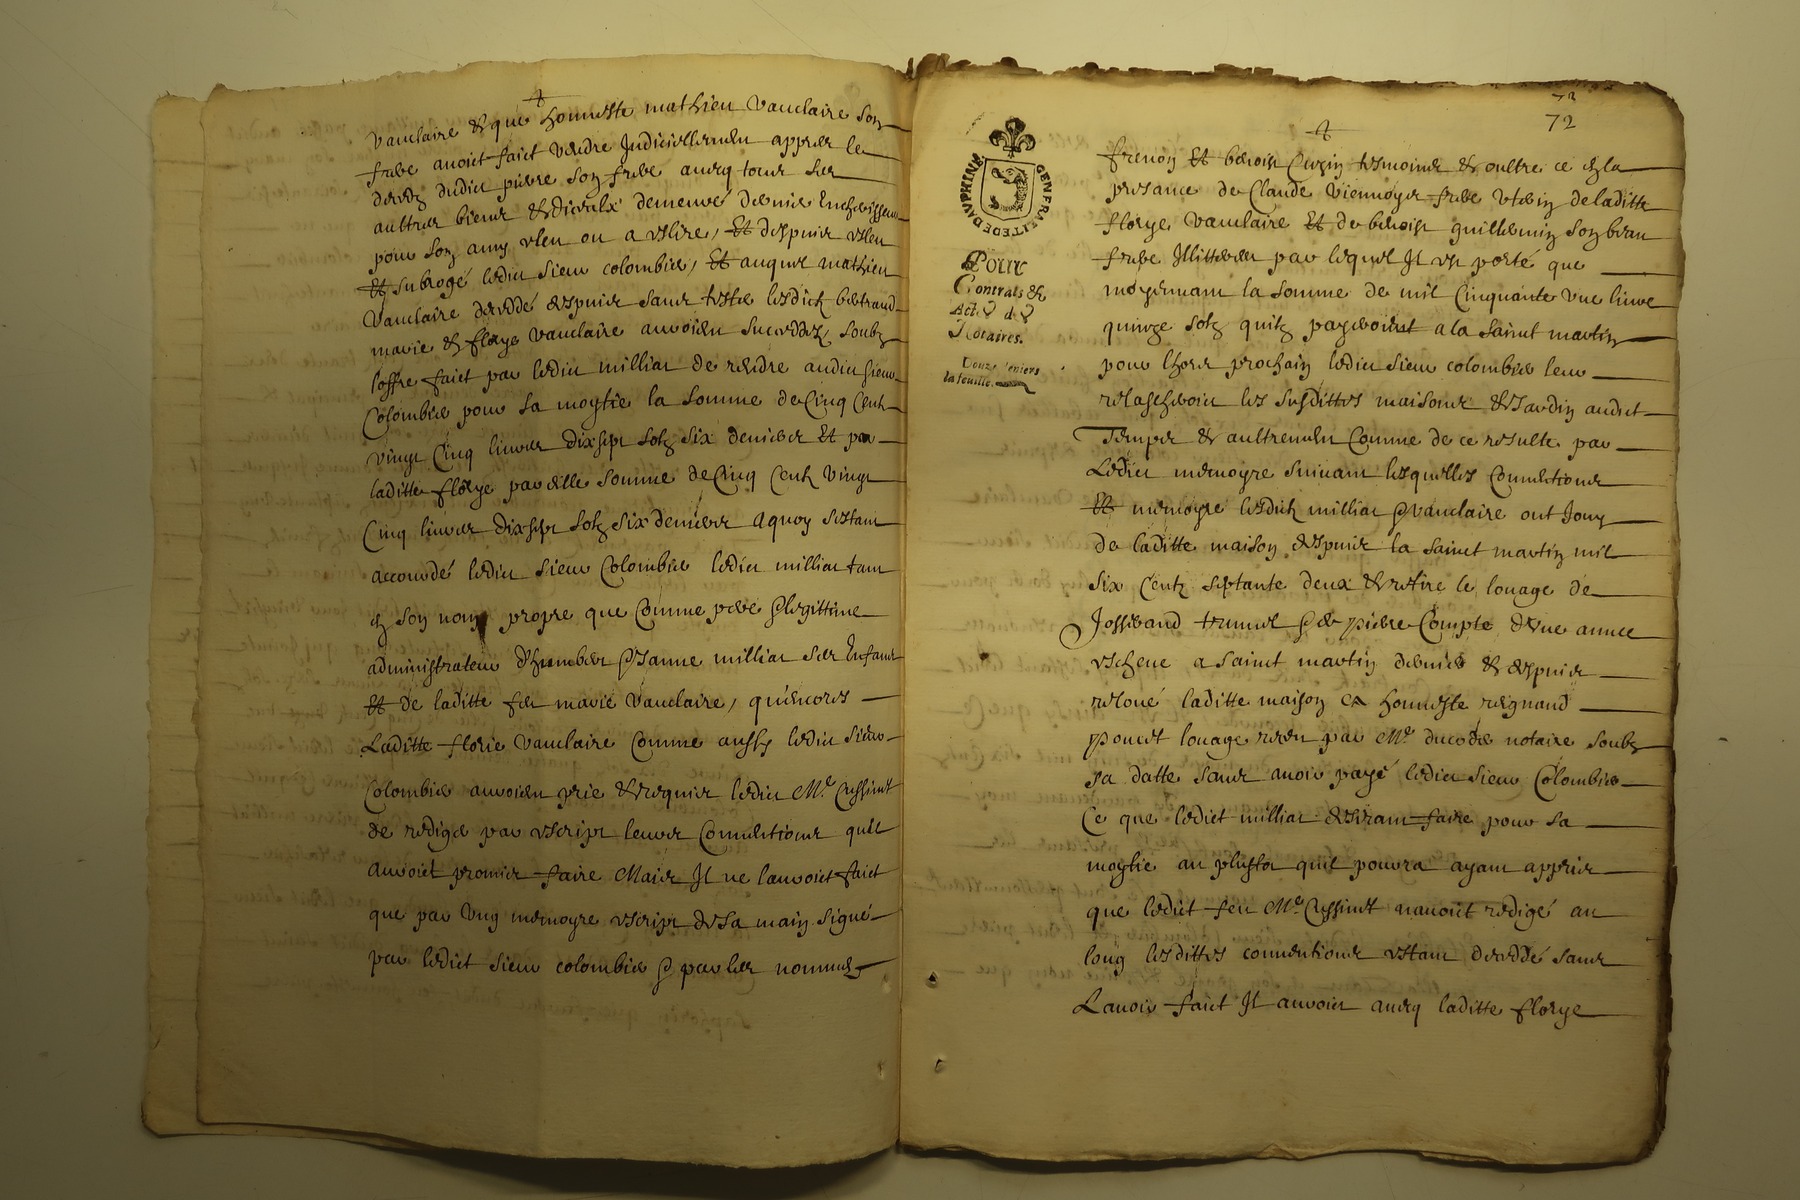 vauclaire & que honneste mathieu vauclaire son
frere avoit faict vendre Judiciellement appres le
decedz dudict pierre son frere avecq tous ses
aultres biens & dicelx demeuré dernier Encherisseur
pour son amy esleu ou a eslire, Et despuis esleu
Et subrogé ledict sieur colombier, Et auquel mathieu
vauclaire decedé despuis sans tester lesdictz bertrand
marie & florye vauclaire auroient succeddez soubz
loffre faict par ledict milliat de rendre audict sieur
Colombier pour sa moytie la somme de Cinq Centz
vingt Cinq livres dixsept solz six deniers Et par
laditte florye pareille somme de Cinq Centz vingt
Cinq livres dixsept solz six deniers aquoy sestant
accordé ledict sieur Colombier ledict milliat tant
en son nom propre que Comme pere & legittime
administrateur dhumbert & Janne milliat ses Enfans
Et de laditte feu marie vauclaire, qu'encores
Laditte florie vauclaire Comme aussy ledict sieur
Colombier auroient prie & requis ledict Me. Cussinet
de rediger par escript leurs Conventions quil
auroict promis faire Mais Il ne lauroict faict
que par ung memoyre escript de sa main signé
par ledict sieur colombier & par les nommes
73
72
frenon Et benoist Cuzin tesmoins & oultre ce en la
presance de Claude viennoys frere uterin de laditte
florye vauclaire Et de benoist guilhemin son beau
frere Illitteres par lequel Il est porté que
moyennant la somme de mil Cinquante une livre
quinze solz quilz payeroient a la saint martin
pour lhors prochain ledict sieur colombier leur
relascheroict les susdittes maisons & Jardin audict
Temps & aultrement Comme de ce resulte par
Ledict memoyre suivant lesquelles Conventions
Et memoyre lesdictz milliat & vauclaire ont Jouy
de laditte maison despuis la sainct martin mil
six Centz septante deux & retiré le louage de
Josserand & de pierre Compte d'une annee
escheue a saint martin dernier & despuis
reloué laditte maison a honneste reynaud
poncet louage receu par Me. notaire soubz
sa datte sans avoir payé ledict sieur Colombier
Ce que ledict milliat desirant faire pour sa
moytie au plustot quil pourra ayant appris
que ledict feu Me. Cussinet navoit redigé au
long lesdittes conventions estant decedé sans
Lavoir faict Il auroict avecq laditte florye
DAUPHINE
GEN FRAITE DE
Pour
Contrats &
Actes des
Notaires.
Douze deniers
la feuille.